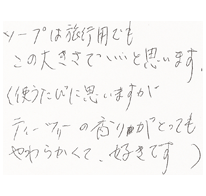 ソープは旅行用でも
この大きさでいいと思います。
(使うたびに思いますが
ティーツリーの香りがとっても
やわらかくて、好きです)